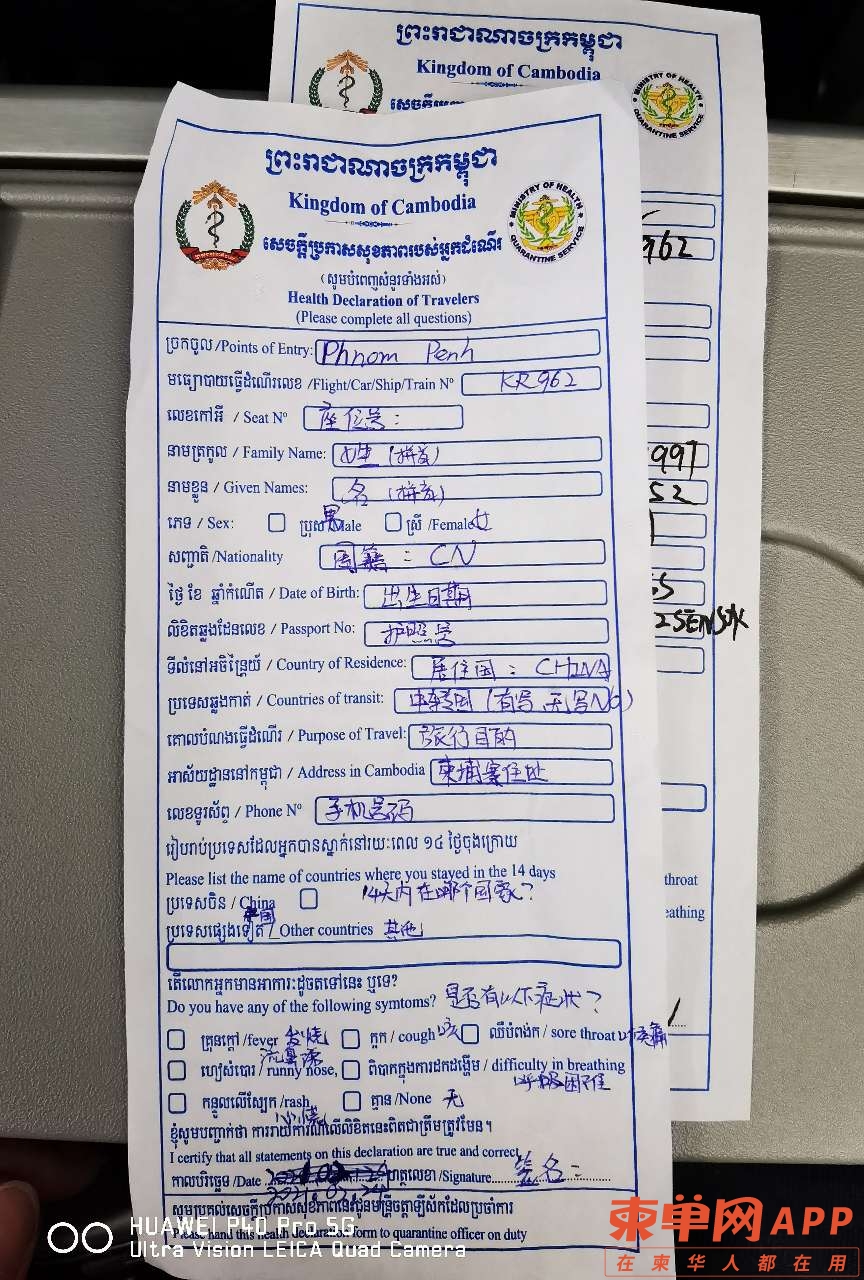 ព្រះរាជាណាចក្រកម្ពុជា
Kingdom of Cambodia
សេចក្តីប្រ
MINISTRY OF HEALTH
QUARANTINE SERVICE
962
997
52
2 SENSOK
throat
eathing
ព្រះរាជាណាចក្រកម្ពុជា
Kingdom of Cambodia
MINISTRY OF HEALTH
QUARANTINE SERVICE
សេចក្តីប្រកាសសុខភាពរបស់អ្នកដំណើរ
(សូមបំពេញសំនួរទាំងអស់)
Health Declaration of Travelers
(Please complete all questions)
ច្រកចូល /Points of Entry: Phnom Penh
មធ្យោបាយធ្វើដំណើរលេខ /Flight/Car/Ship/Train Nº KR962
លេខកៅអី / Seat Nº 座位号:
នាមត្រកូល / Family Name: 姓 (拼音)
នាមខ្លួន / Given Names: 名 (拼音)
ភេទ / Sex: ប្រុស Male 男 ស្រី /Female 女
សញ្ជាតិ /Nationality 国籍: CN
ថ្ងៃ ខែ ឆ្នាំកំណើត / Date of Birth: 出生日期
លិខិតឆ្លងដែនលេខ / Passport No: 护照号
ទីលំនៅអចិន្ត្រៃយ៍ / Country of Residence: 居住国: CHINA
ប្រទេសឆ្លងកាត់ / Countries of transit: 中转国 (有写 无写NO)
គោលបំណងធ្វើដំណើរ / Purpose of Travel: 旅行目的
អាស័យដ្ឋាននៅកម្ពុជា / Address in Cambodia 柬埔寨住址
លេខទូរស័ព្ទ / Phone Nº 手机号码
រៀបរាប់ប្រទេសដែលអ្នកបានស្នាក់នៅរយៈពេល ១៤ ថ្ងៃចុងក្រោយ
Please list the name of countries where you stayed in the 14 days
ប្រទេសចិន / China 中国 14天内在哪个国家?
ប្រទេសផ្សេងទៀត / Other countries 其他
តើលោកអ្នកមានអាការៈដូចតទៅនេះ ឬទេ?
Do you have any of the following symtoms? 是否有以下症状?
គ្រុនក្តៅ /fever 发烧 ក្អក / cough 咳 ឈឺបំពង់ក / sore throat 喉痛
ហៀរសំបោរ / runny nose, 流鼻涕 ពិបាកក្នុងការដកដង្ហើម / difficulty in breathing 呼吸困难
កន្ទួលលើស្បែក /rash, គ្មាន /None 无
ខ្ញុំសូមបញ្ជាក់ថា ការរាយការណ៍លើលិខិតនេះពិតជាត្រឹមត្រូវមែន។
I certify that all statements on this declaration are true and correct
កាលបរិច្ឆេទ /Date 2021.02.24 ហត្ថលេខា /Signature 签名:
សូមប្រគល់សេចក្តីប្រកាសសុខភាពនេះជូនមន្ត្រីចត្តាឡីស័កដែលប្រចាំការ
Please hand this health declaration form to quarantine officer on duty
HUAWEI P40 Pro 5G
Ultra Vision LEICA Quad Camera
柬单网APP
在柬华人都在用